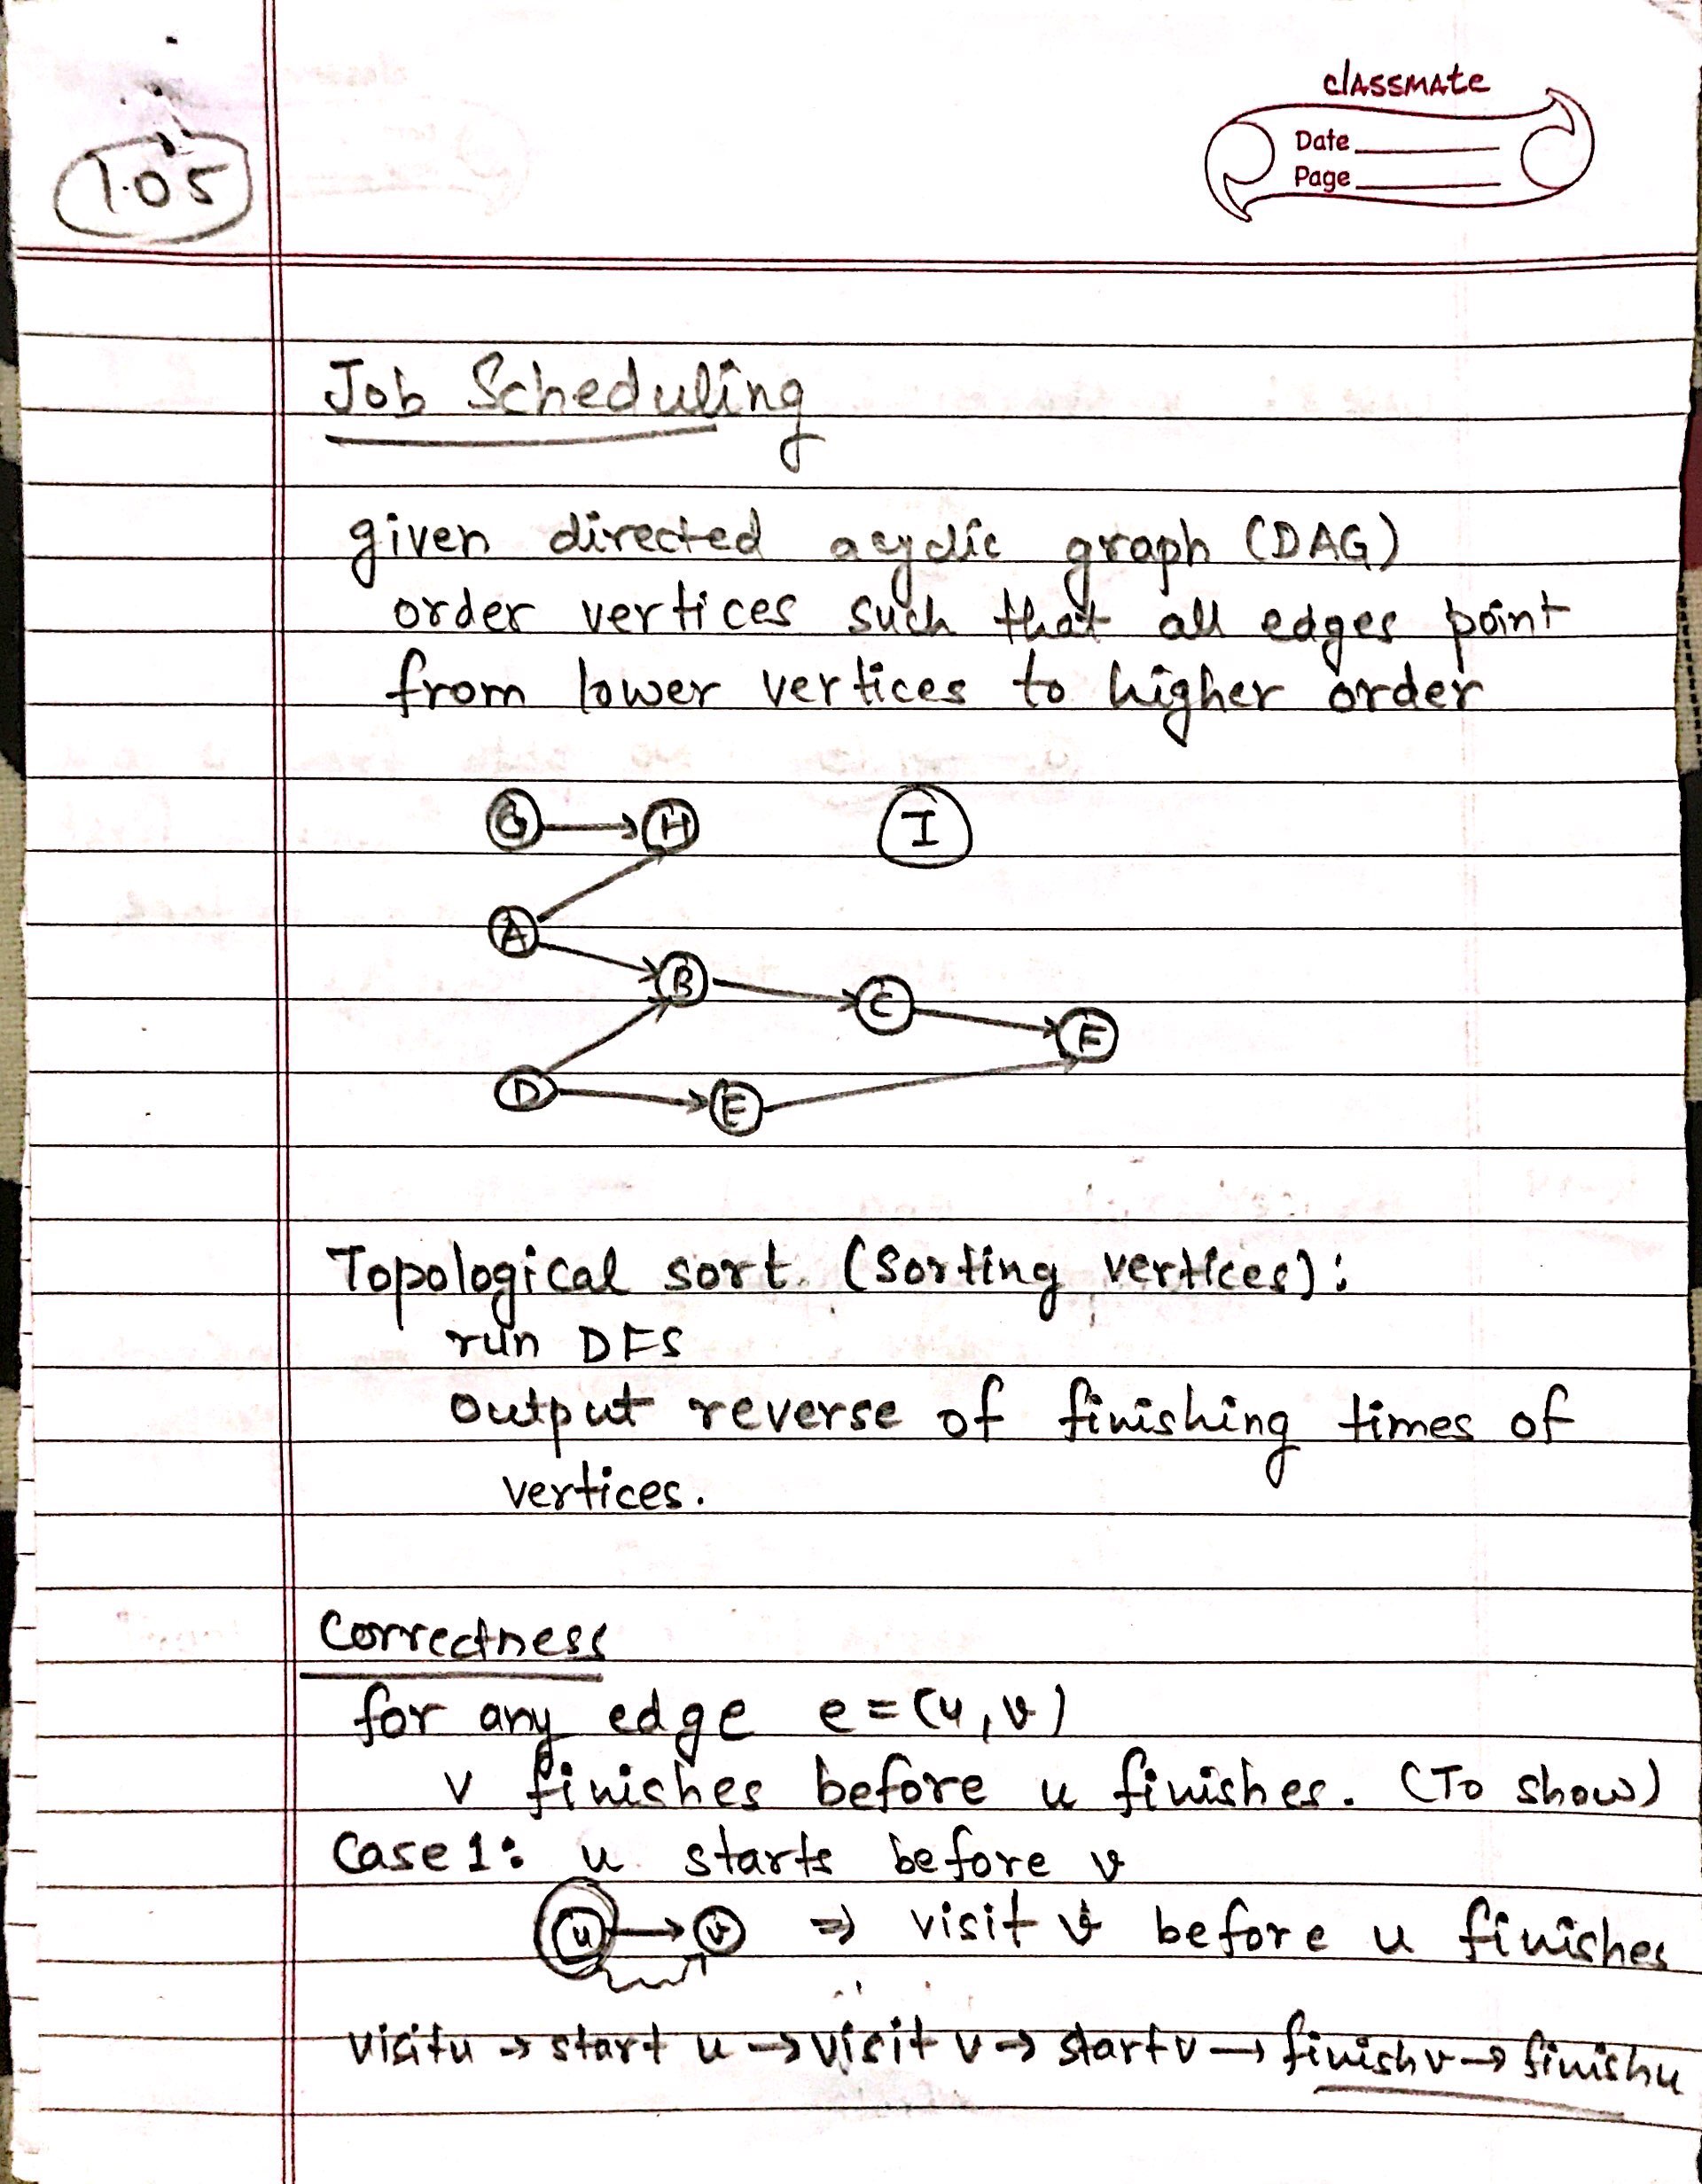 classmate
Date
Page
1.05
Job Scheduling
given directed acyclic graph (DAG)
order vertices such that all edges point
from lower vertices to higher order
G → H I
A
B → C → F
D → E
Topological sort. (Sorting vertices):
run DFS
output reverse of finishing times of
vertices.
Correctness
for any edge e = (u, v)
v finishes before u finishes. (To show)
Case 1: u starts before v
u → v ⇒ visit v before u finishes
visit u → start u → visit v → start v → finish v → finish u